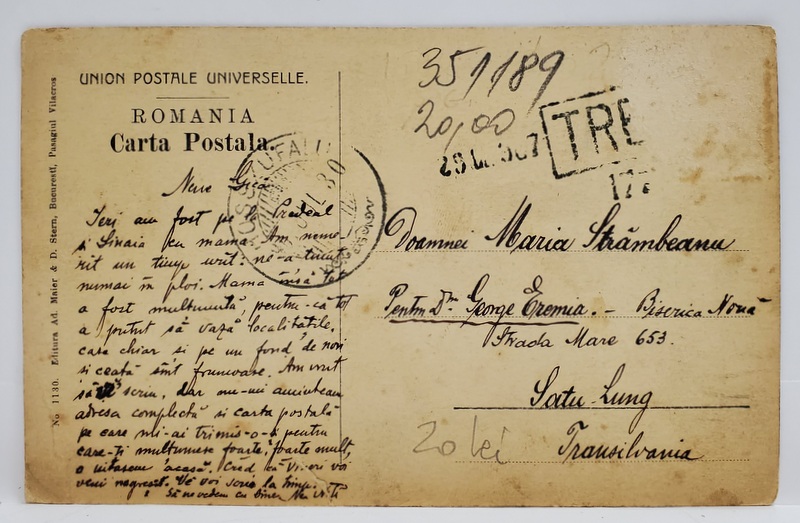 UNION POSTALE UNIVERSELLE.
ROMANIA
Carta Postala.
No 1130. Editura Ad. Maier & D. Stern, Bucuresti, Pasagiul Vilacros
351189
20,00
TRE
HOSSZUFALU
Nene Gică
Ieri am fost pe la Predeal
și Sinaia cu mama. Am neme-
rit un timp urît: ne-a ținut
numai în ploi. Mama însă tot
a fost mulțumită, pentru-că tot
a putut să vază localitățile,
cari chiar si pe un fond de nori
si ceață sînt frumoase. Am vrut
să scriu, dar nu-mi aminteam
adresa complectă si carta postală
pe care mi-ai trimis-o și pentru
care-ți multumesc foarte, foarte mult,
o uitasem acasă. Cred că Vi-eri voi
veni negresit. Vĕ voi scrie la timp.
Să ne vedem cu bine.
Doamnei Maria Strâmbeanu
Pentru Dl. George Eremia. - Biserica Nouă
Strada Mare 653.
Satu-Lung
Transilvania
20 lei